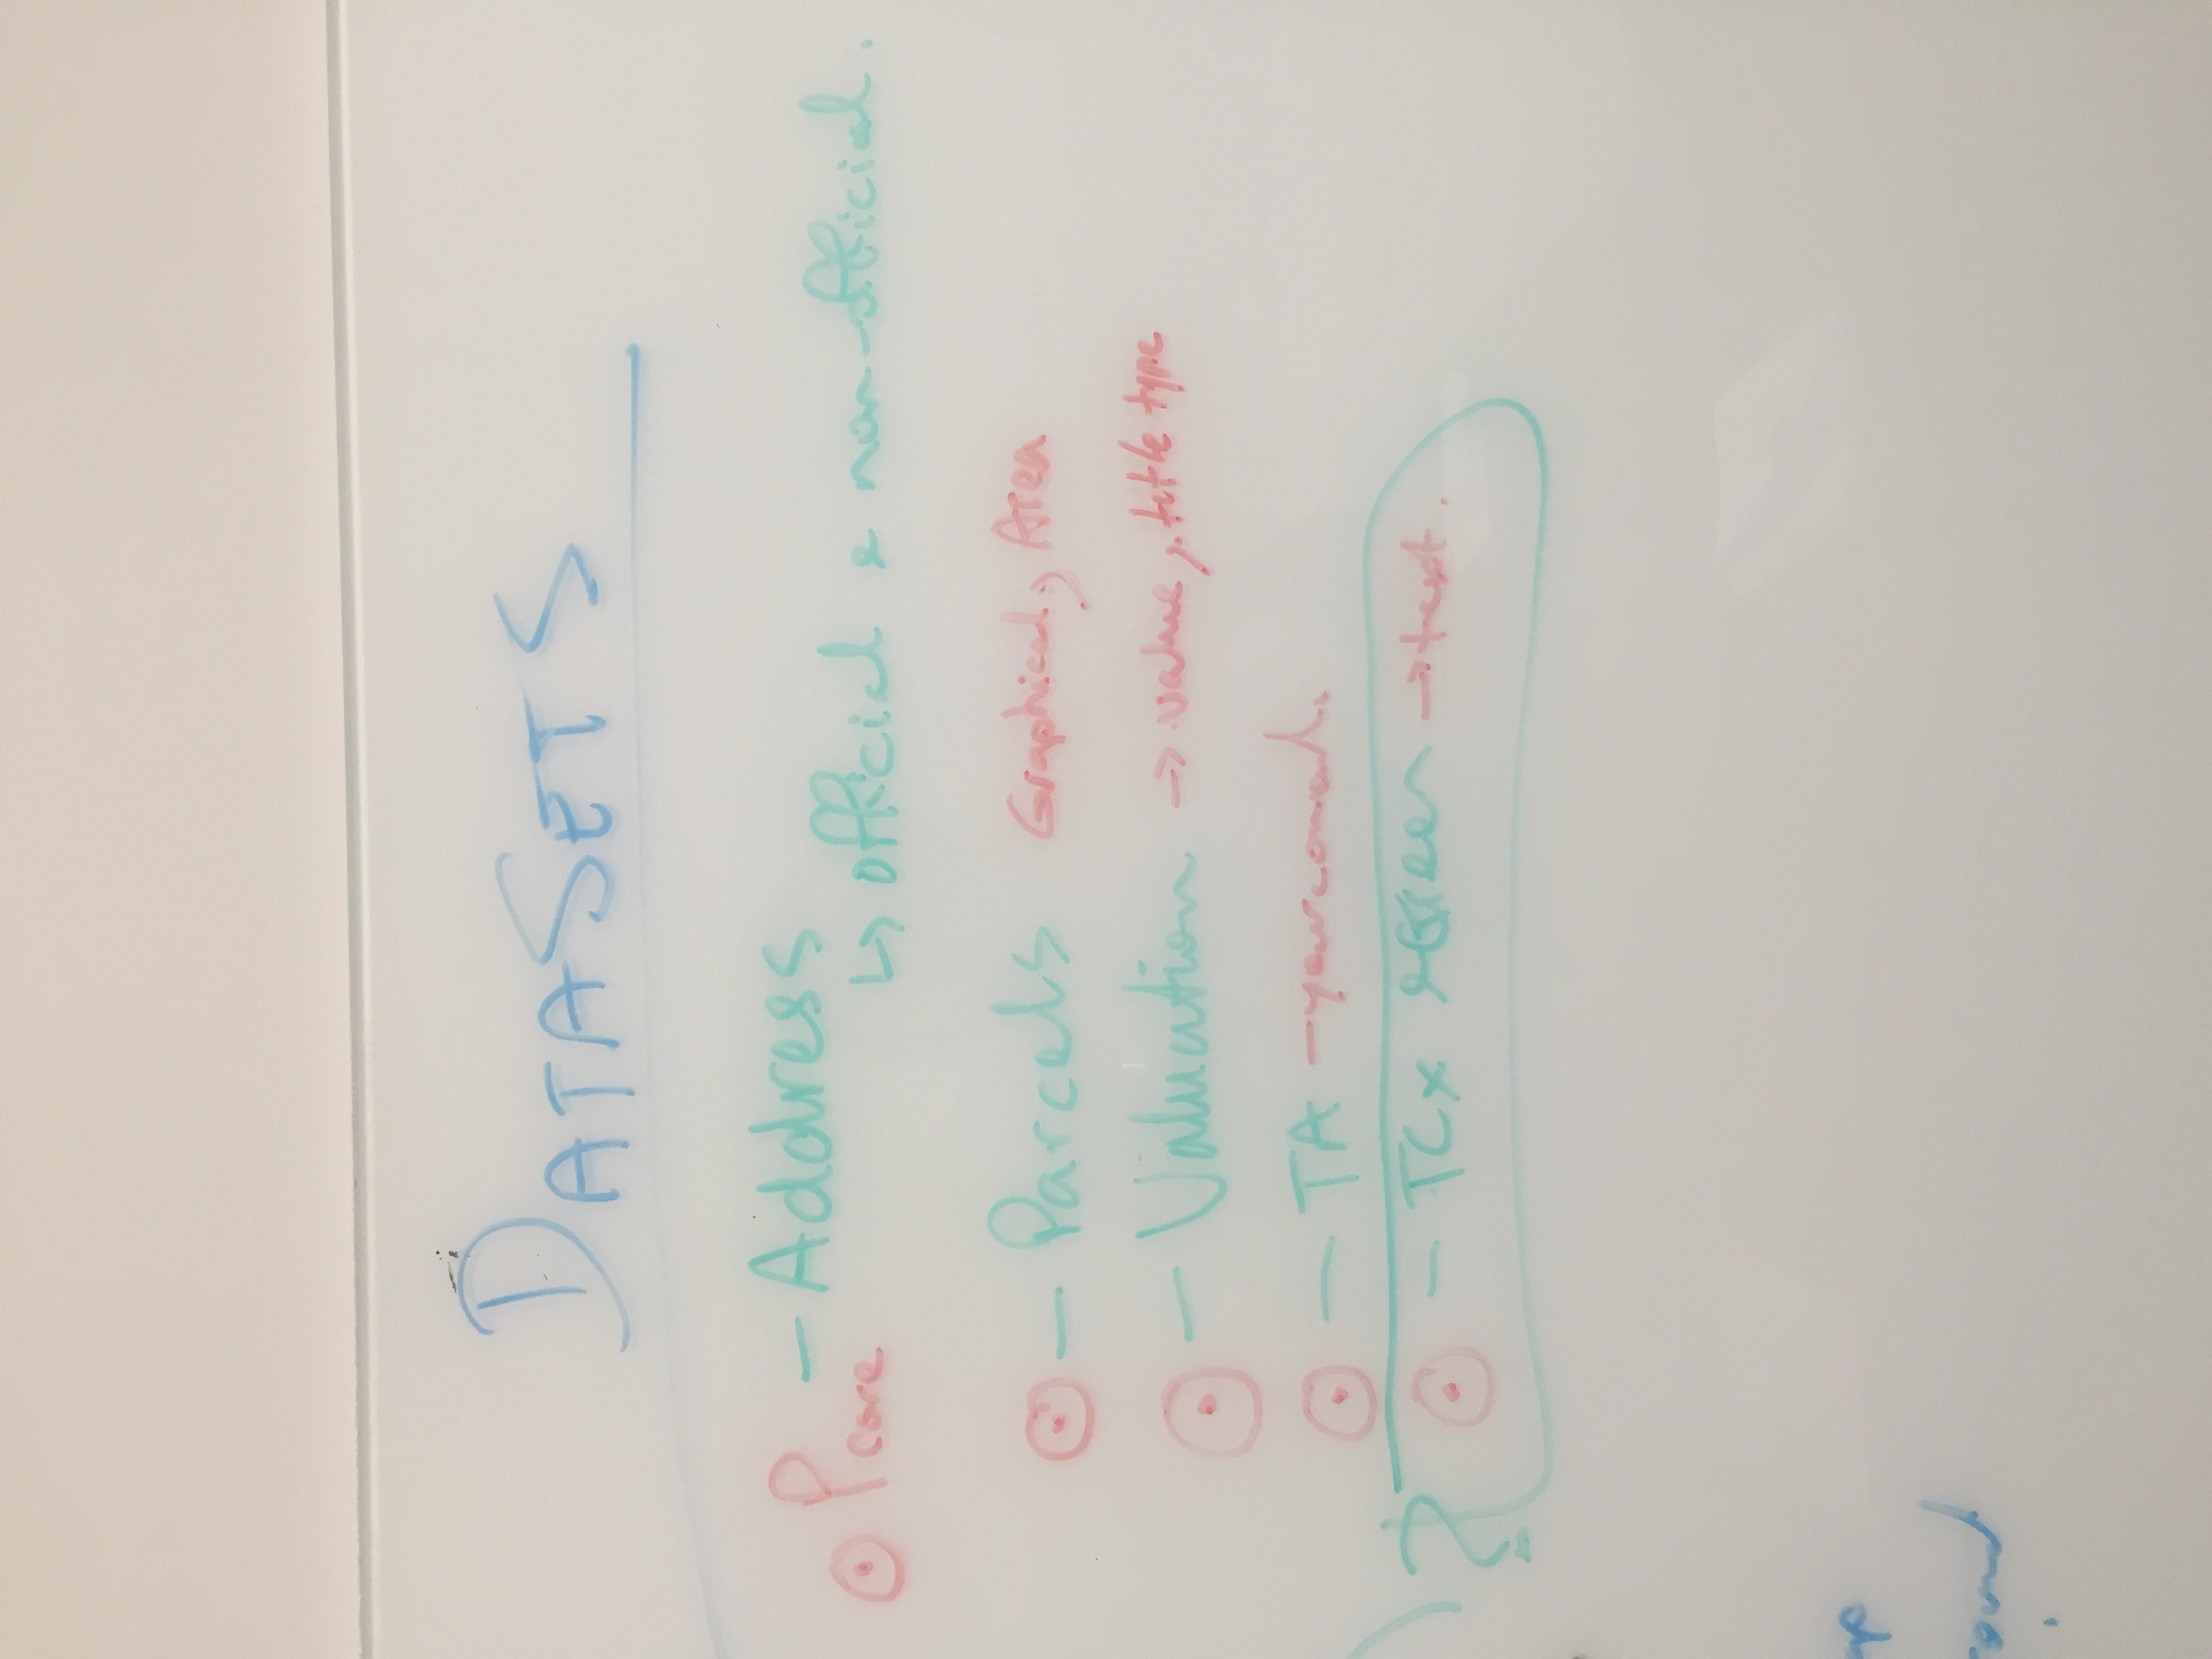 DATASETS
P core - Address
↳ official & non-official.
- Parcels Graphical, Area
- Valuation → value, title type
- TA - your
? - TCx &Green → text.